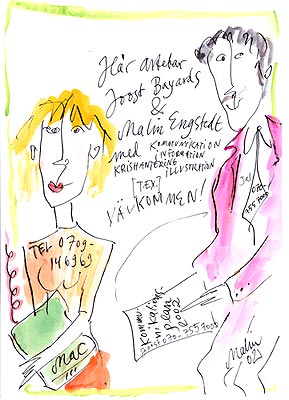 Här arbetar
Joost Bayards
&
Malin Engstedt
med KOMMUNIKATION
INFORMATION
KRISHANTERING
ILLUSTRATION
[TEX]
VÄLKOMMEN!
TEL 0709-
146969
MAC
Kommu-
nikations-
Plan
2002
Joost 070-7557008
Tel
070-
755 7008
Malin
02